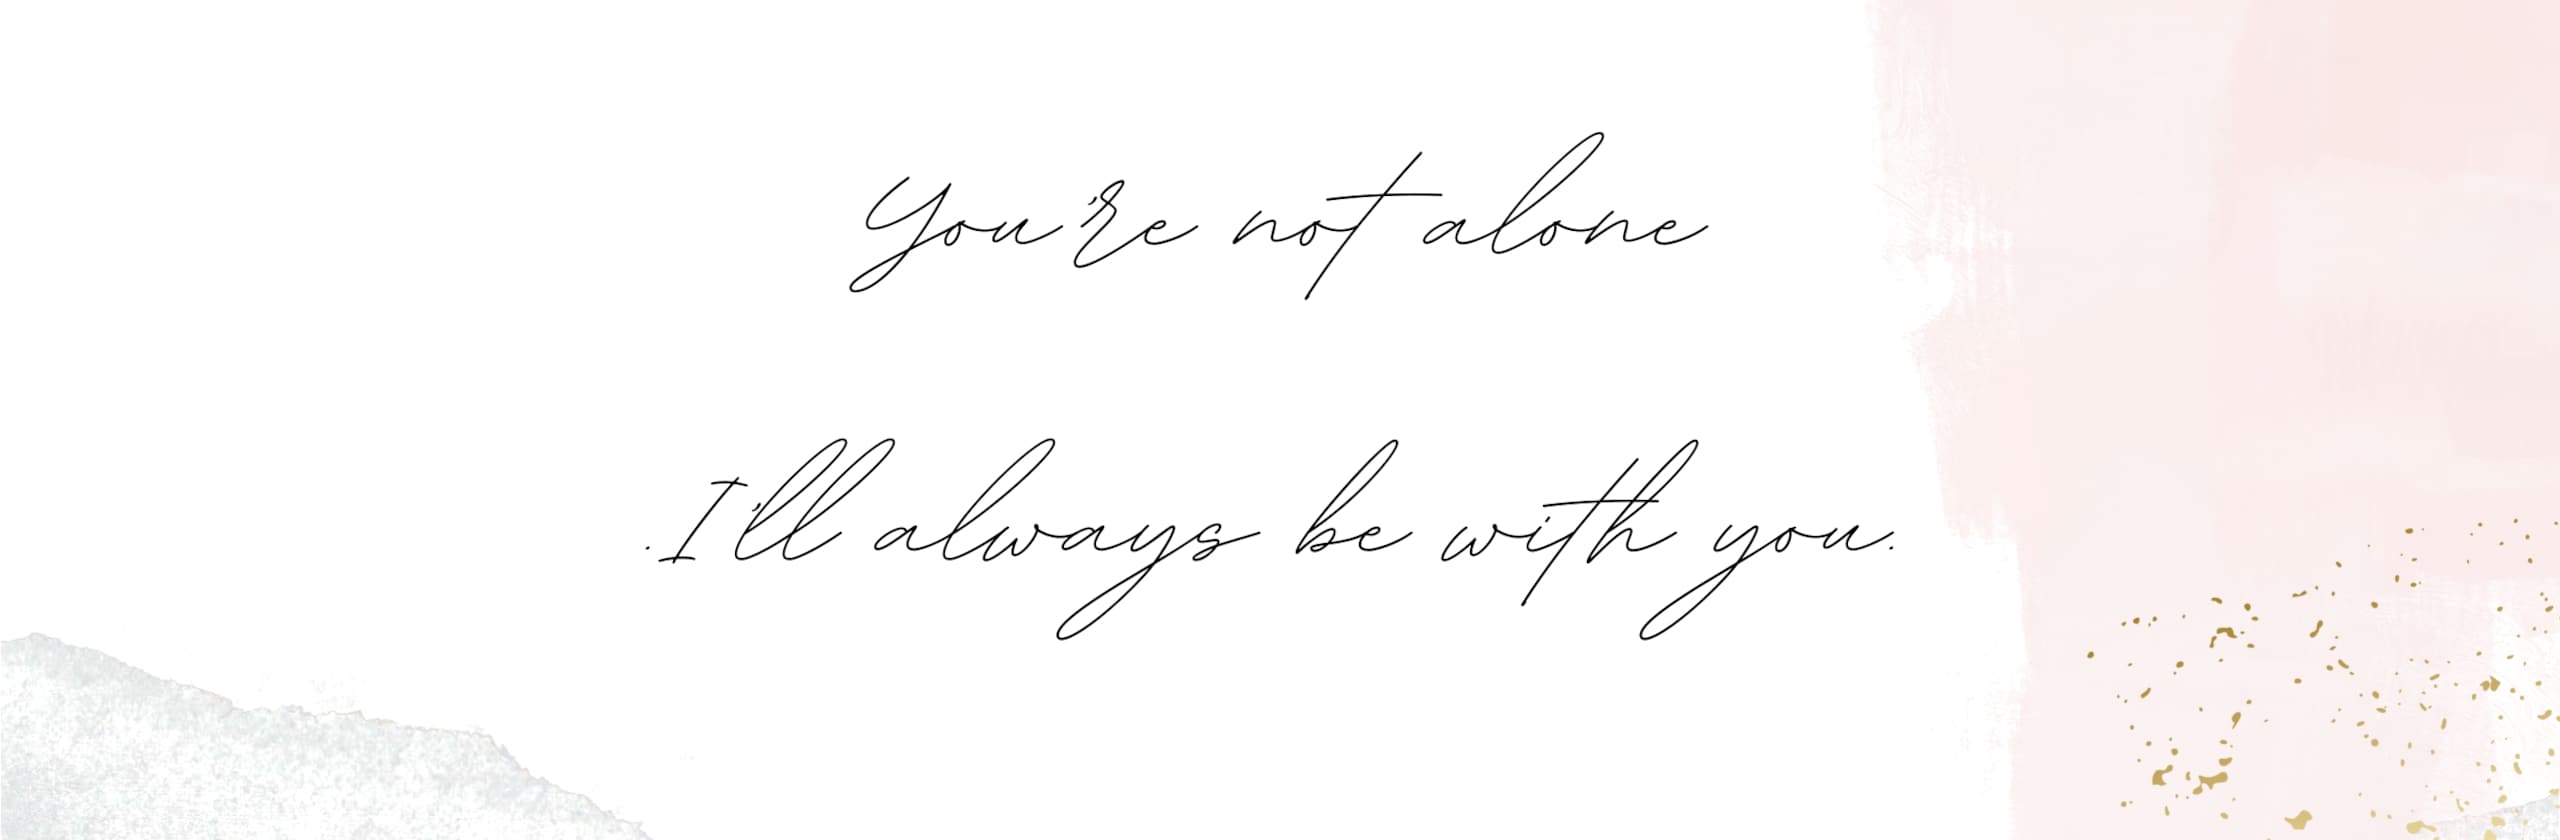 You're not alone
.I'll always be with you.